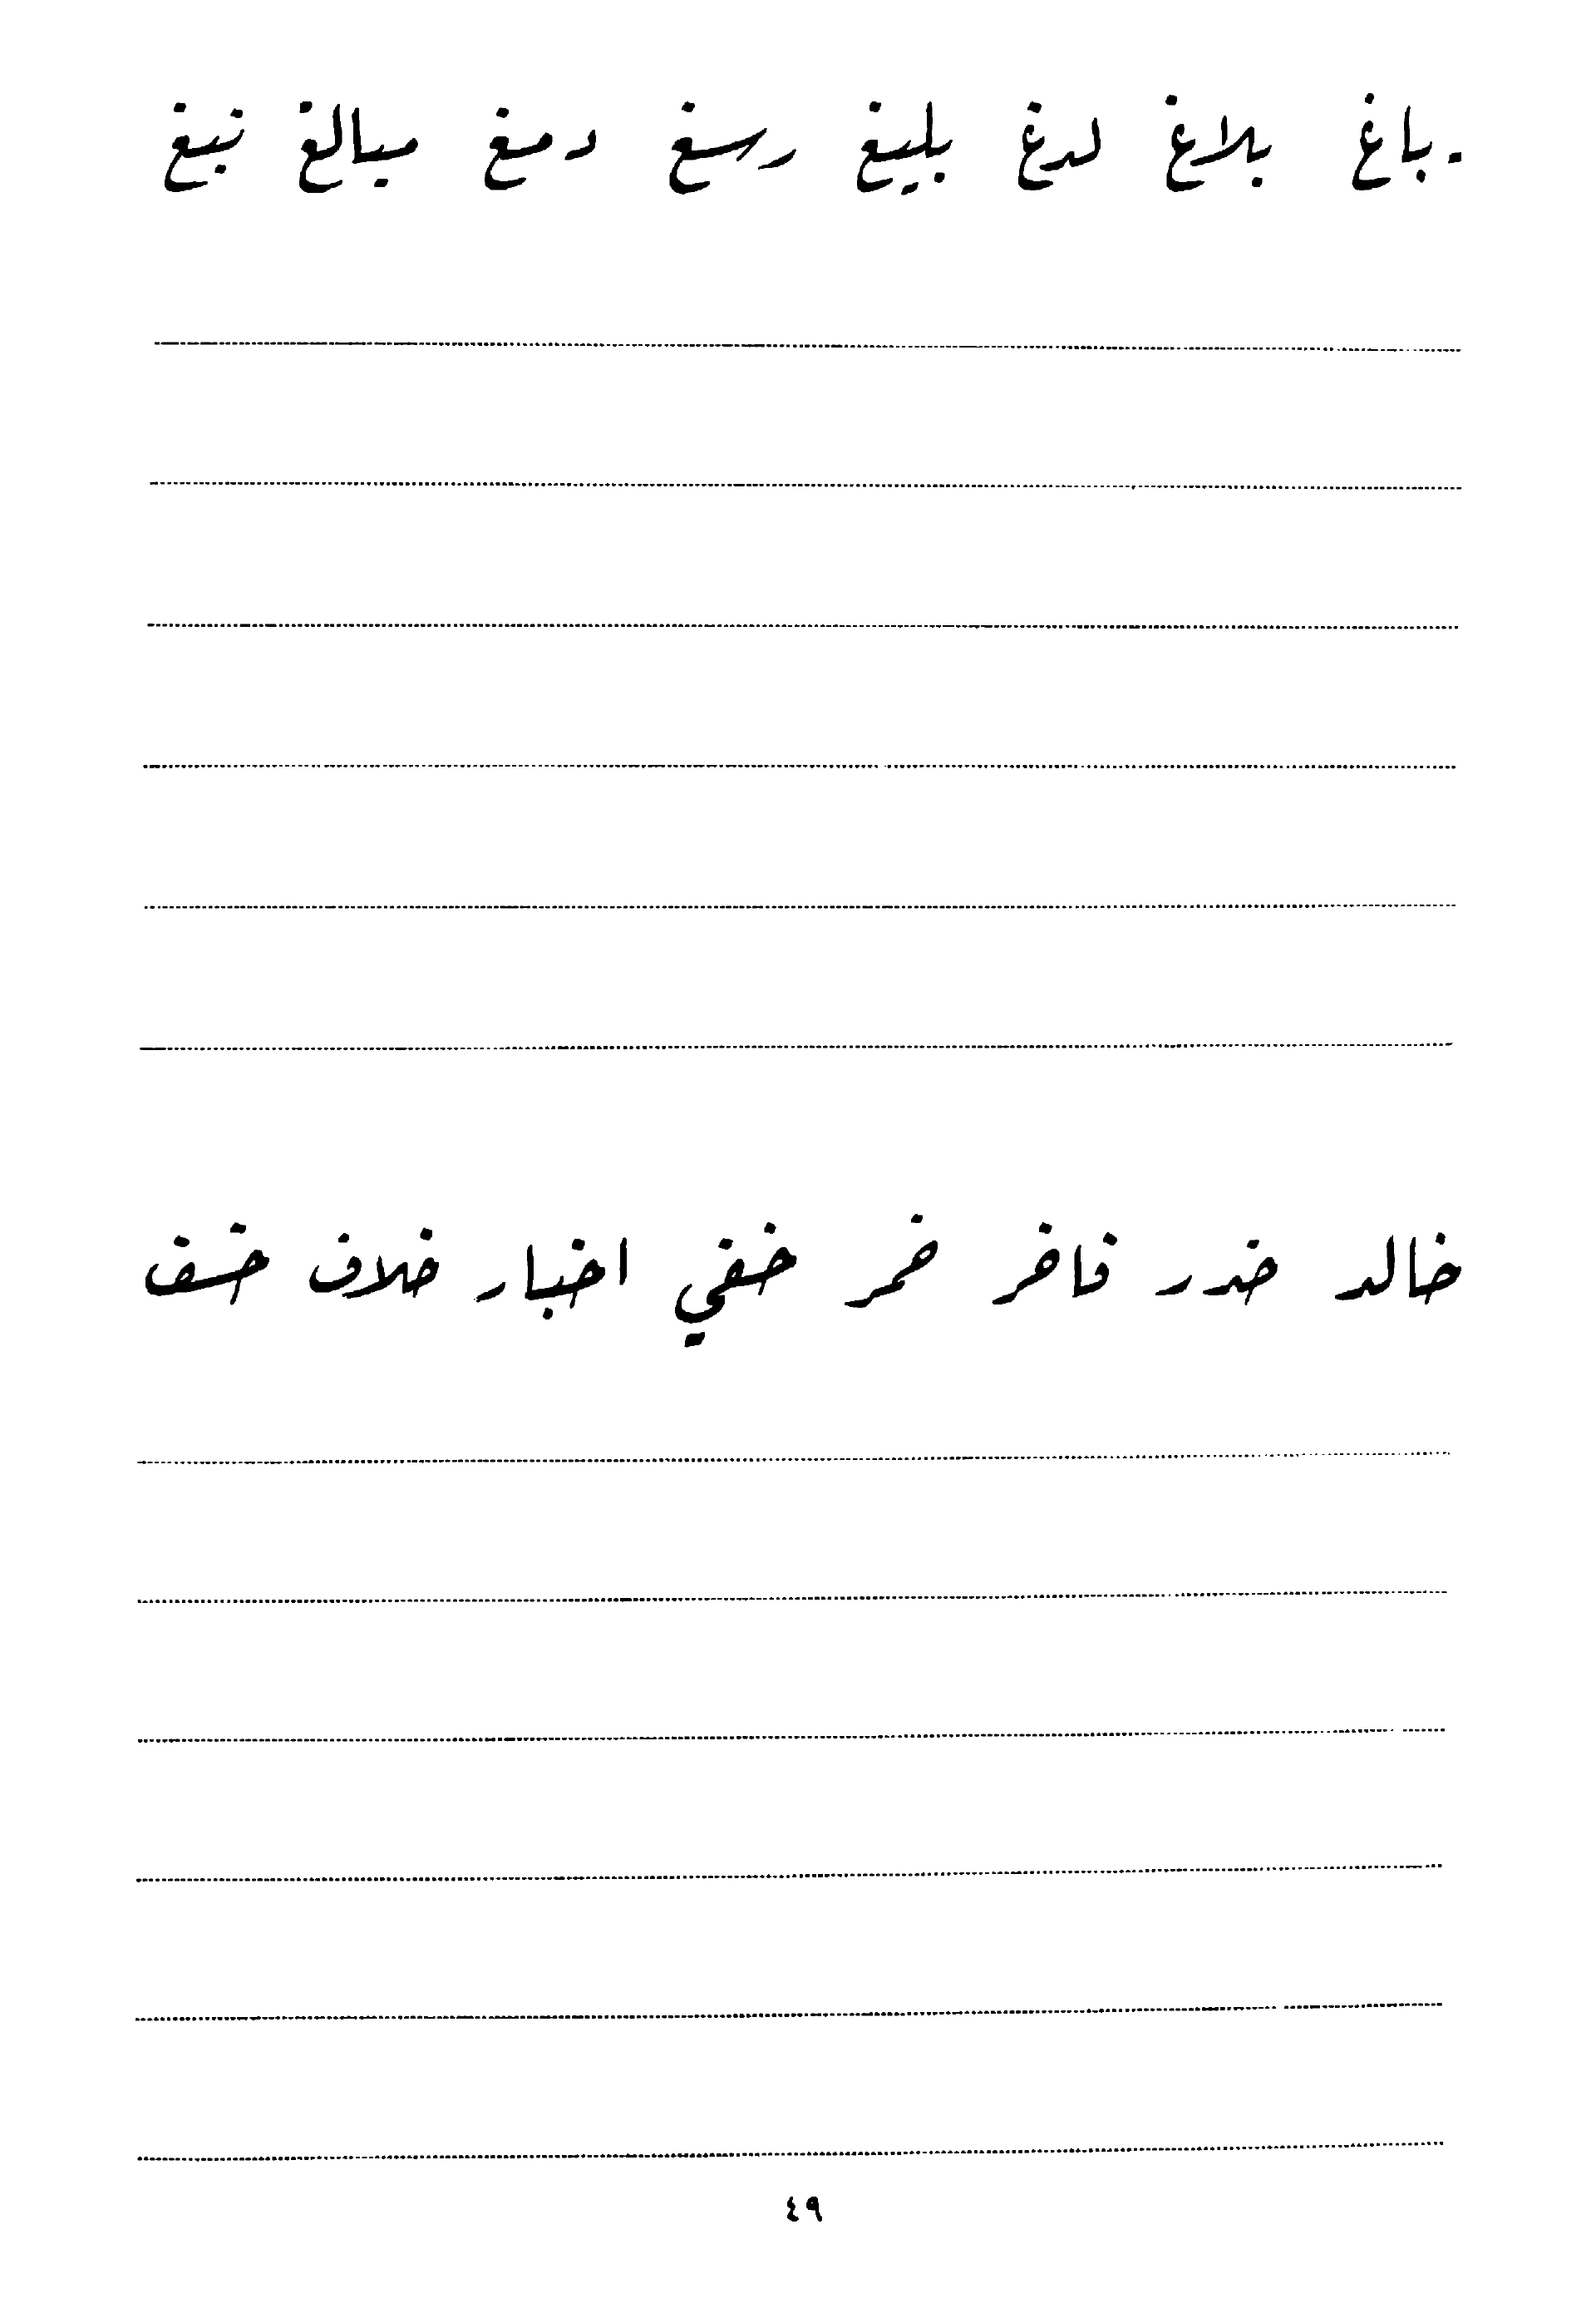 باغ بلاغ لدغ بليغ رسغ دمغ مبالغ نبغ
خالد خدر فاخر خمر خفي اخبار خلاف خسف
٤٩